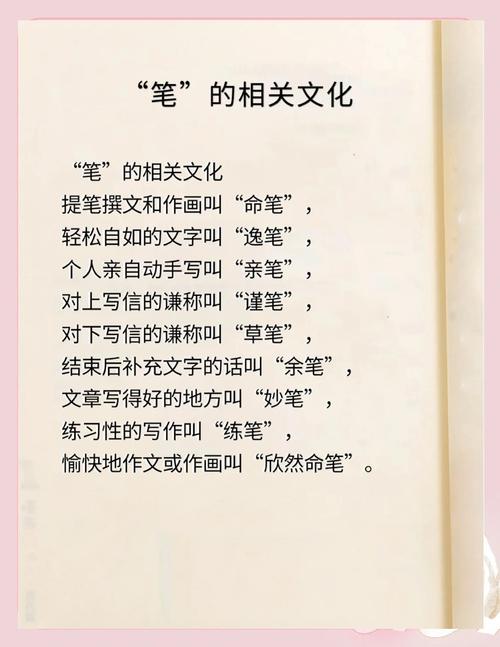 “笔”的相关文化
“笔”的相关文化
提笔撰文和作画叫“命笔”，
轻松自如的文字叫“逸笔”，
个人亲自动手写叫“亲笔”，
对上写信的谦称叫“谨笔”，
对下写信的谦称叫“草笔”，
结束后补充文字的话叫“余笔”，
文章写得好的地方叫“妙笔”，
练习性的写作叫“练笔”，
愉快地作文或作画叫“欣然命笔”。